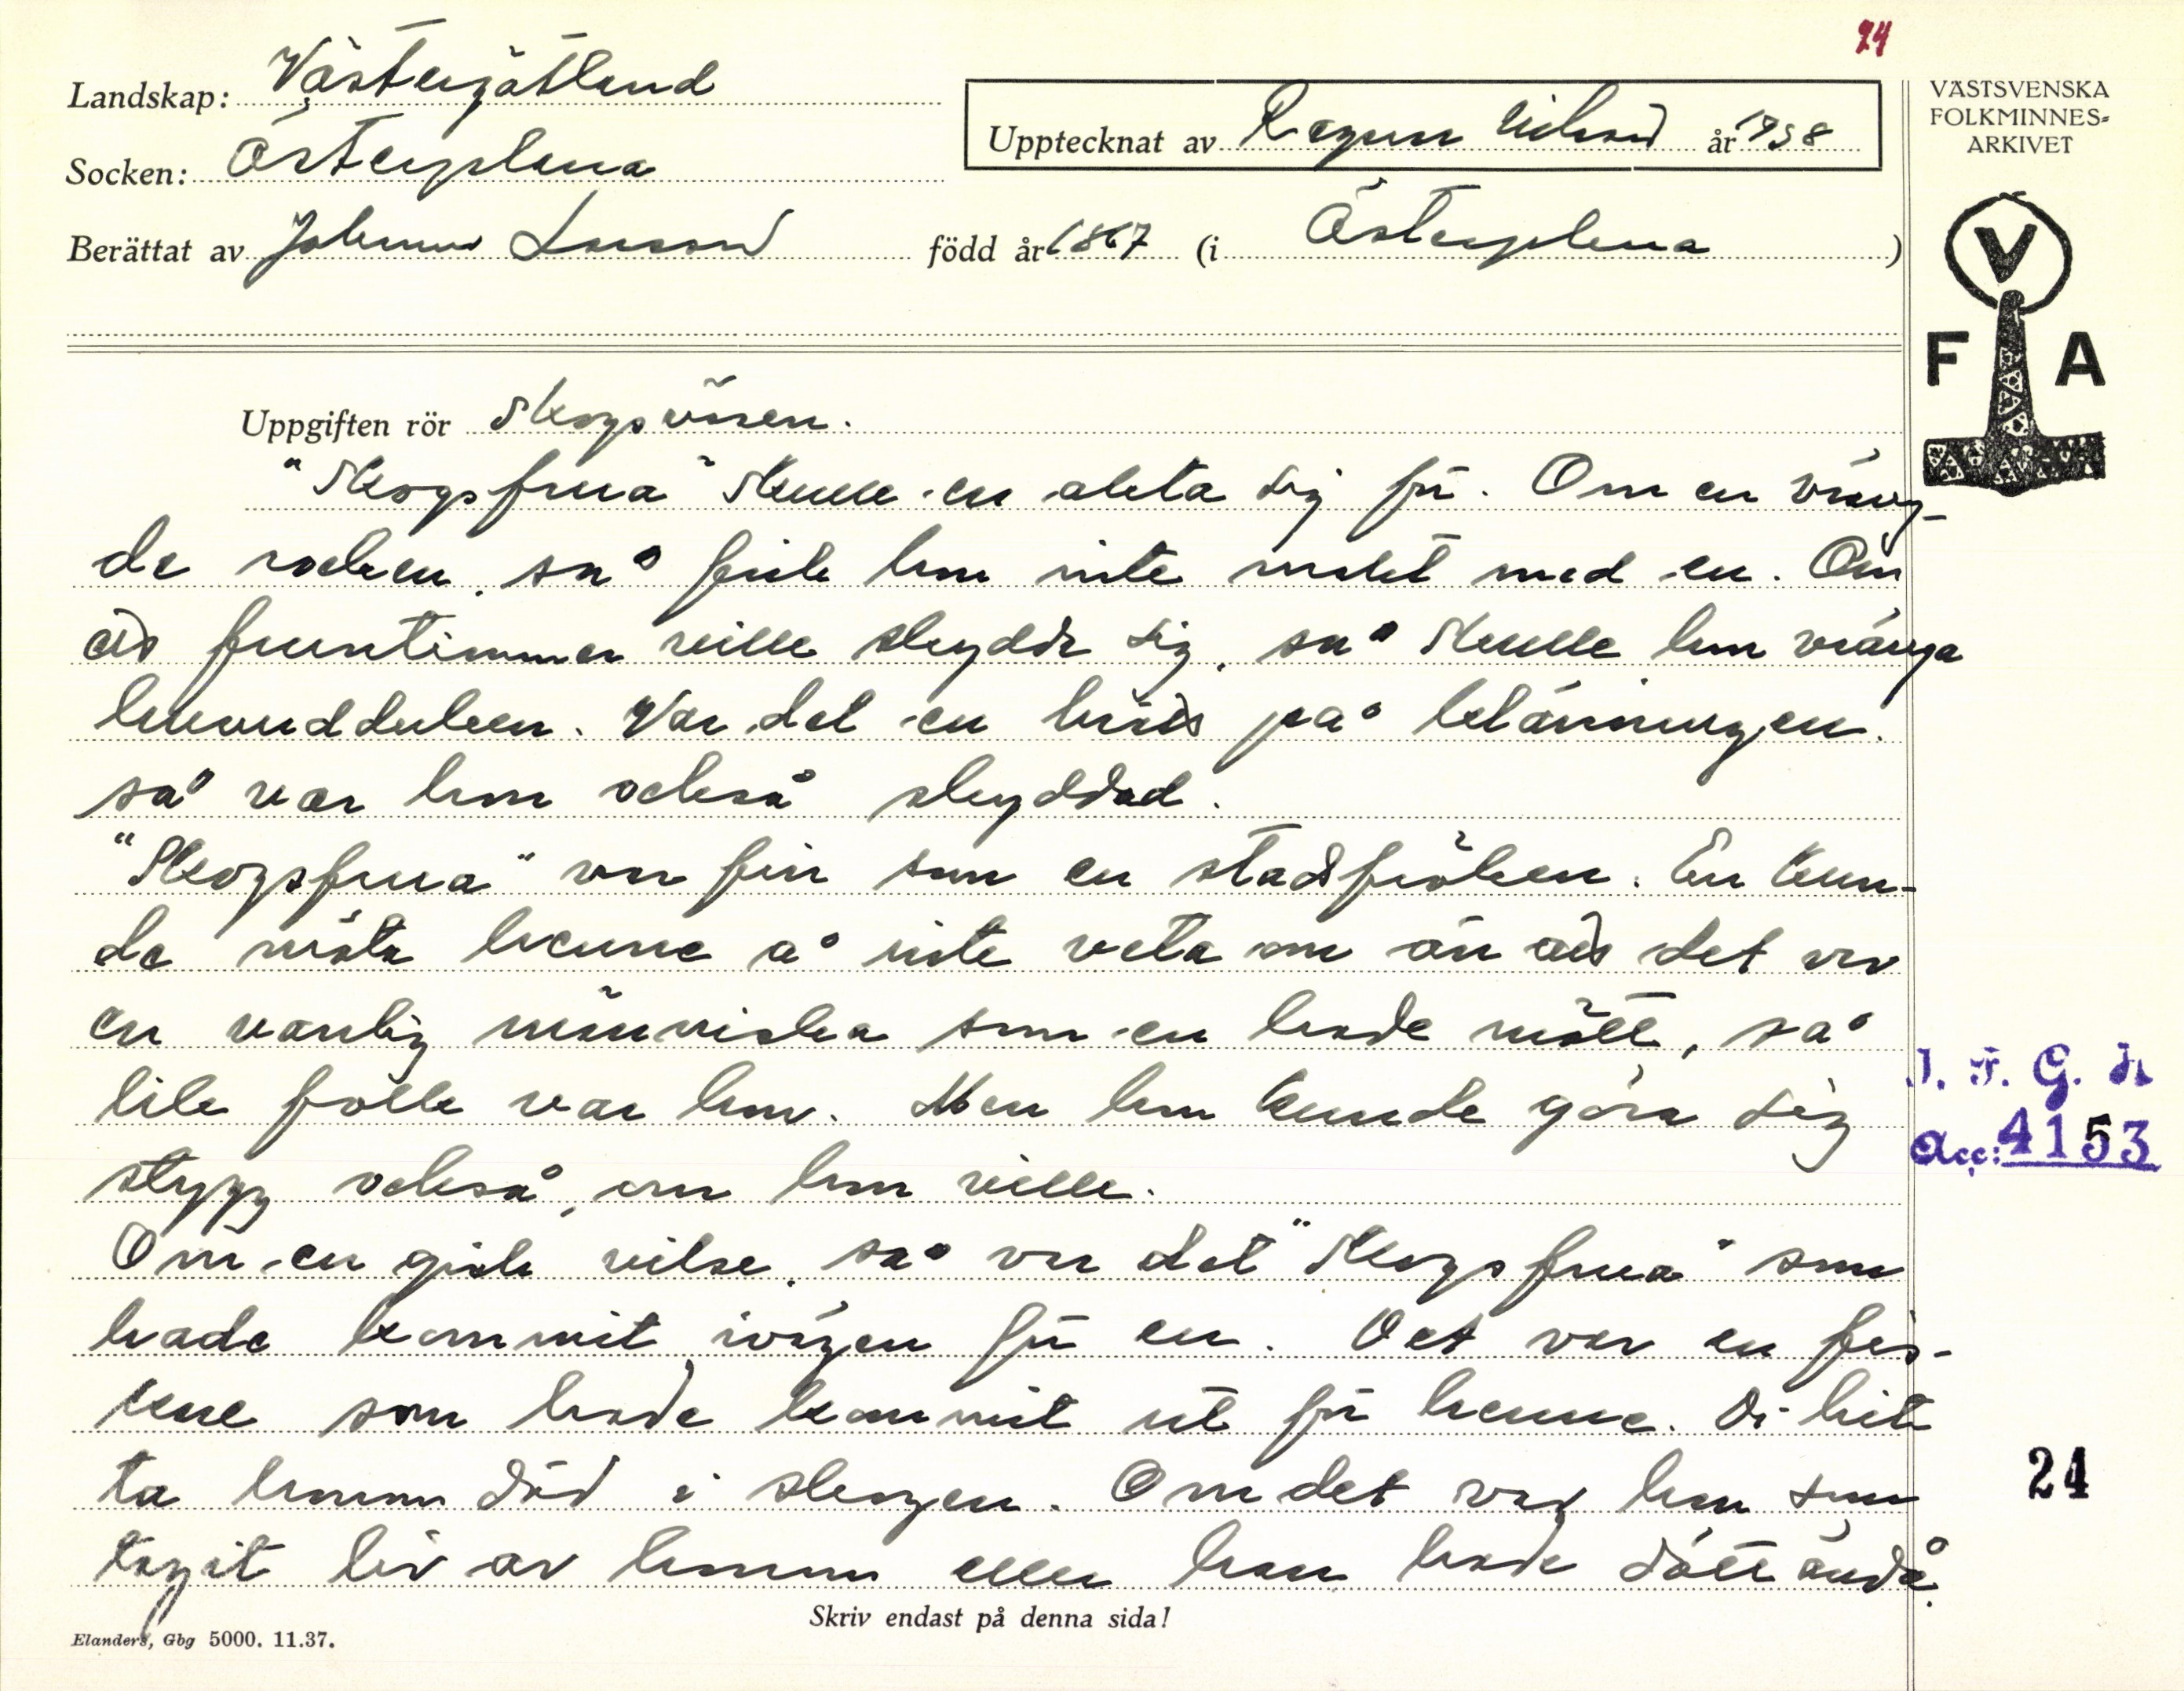 24
Landskap: Västergötland
Socken: Österplana
Upptecknat av Ragnar Nilsson år 1938
VÄSTSVENSKA
FOLKMINNES-
ARKIVET
Berättat av Johannes Larsson född år 1867 (i Österplana)
V
F A
Uppgiften rör Skogsväsen.
"Skogsfrua" skulle en akta sig för. Om en vräng-
de rocken, sa° fick hon inte makt med en. Om
ett fruntimmer ville skydda sig, sa° skulle hon vränga
huvudduken. Var det en bräs pa° klänningen.
sa° var hon också skyddad.
"Skogsfrua" var fin som en stadsfröken. En kun-
de möta henne a° inte veta om än att det var
en vanlig människa som en hade mött, sa°
lik folk var hon. Men hon kunde göra sig
stygg också, om hon ville.
Om en gick vilse, sa° var det "Skogsfrua" som
hade kommit ivägen för en. Det var en fis-
kare som hade kommit ut för henne. Di hit
ta honom död i skogen. Om det var hon som
tagit liv av honom eller han hade dött ändå.
I. F. G. H
Acc: 4153
24
Skriv endast på denna sida!
Elanders, Gbg 5000. 11.37.